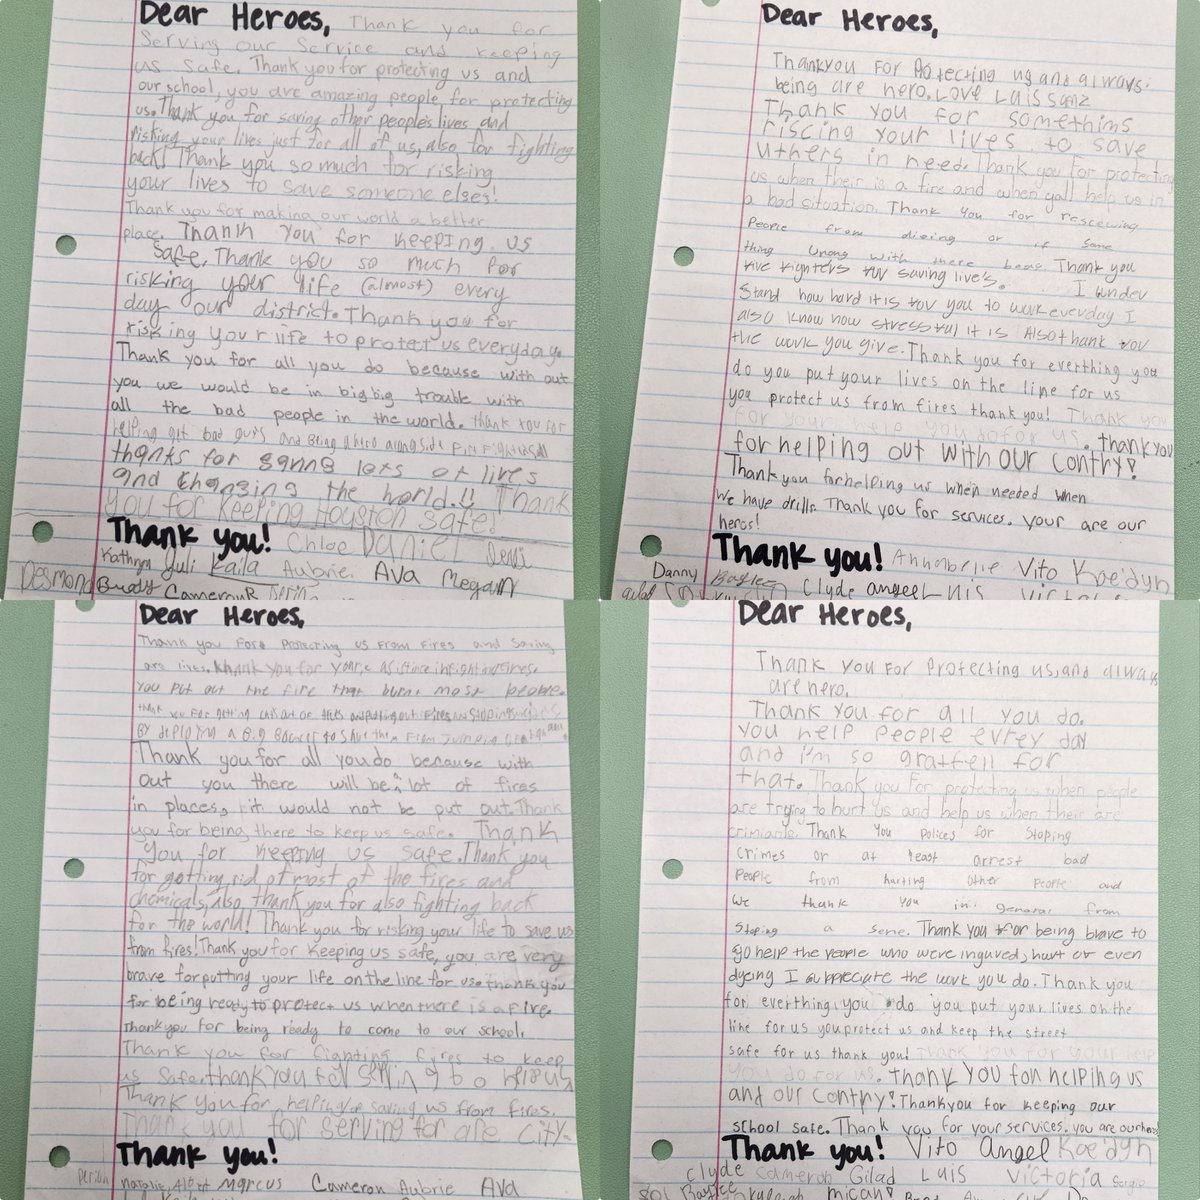 Dear Heroes, Thank you for
Serving our Service and keeping
us safe. Thank you for protecting us and
our school, you are amazing people for protecting
us. Thank you for saving other people's lives and
risking your lives just for all of us, also for fighting
back! Thank you so much for risking
your lives to save someone elses!
Thank you for making our world a better
place. Thank you for keeping us
safe. Thank you so much for
risking your life (almost) every
day our district. Thank you for
risking your life to protect us everyday.
Thank you for all you do because with out
you we would be in big big trouble with
all the bad people in the world. thank you for
helping get bad guys and being a hero alongside
thanks for lots of lives
and changing the world!! Thank
you for keeping Houston safe!
Thank you! Chloe Daniel
Kathryn Juli Kaila Aubrie. Ava Megan
Desmond Brody Cameron R
Dear Heroes,
Thankyou For Protecting us and always
being are hero. Love Luis
Thank you for
riscing your lives to save
uthers in need. Thank you for protecting
us when their is a fire and when yall help us in
a bad situation. Thank you for rescewing
People from dieing or if some
thing wrong with there Thank you
for saving live's. I under
Stand how hard it is for you to work everyday I
also know how stressful it is Also thank you
the work you give. Thank you for everthing you
do you put your lives on the line for us
you protect us from fires thank you! Thank you
for your help you do for us. thank you
for helping out with our contry!
Thank you for helping us when needed when
we have drills. Thank you for services. your are our
heros!
Thank you! Annabelle Vito Koe'dyn
Danny Baylee Clyde angel Luis
Dear Heroes,
Thank you For Protecting us From Fires and Saving
are lives. thank you for
You put out the fire that burn most
thank you For getting cats out of
By deploying a Big
Thank you for all you do because with
out you there will be a lot of fires
in places, it would not be put out. Thank
you for being there to keep us safe. Thank
you for keeping us safe. Thank you
for getting rid of most of the fires and
chemicals, also, thank you for also fighting back
for the world! Thank you for risking your life to save us
from fires! Thank you for keeping us safe, you are very
brave for putting your life on the line for us. thank you
for being ready to protect us when there is a fire.
Thank you for being ready to come to our school.
Thank you for fighting fires to keep
us safe. thank you for
Thank you for helping saving us from fires.
Thank you for serving for are city.
Thank you!
natalie, Marcus Cameron Aubrie Ava
Dear Heroes,
Thank you For Protecting us, and always
are hero.
Thank you for all you do.
you help people evrey day
and i'm so gratfell for
that. Thank you for protecting us when people
are trying to hurt us and help us when their are
Thank you polices for Stoping
crimes or at least arrest bad
People from hurting other people and
We thank you in general from
Stoping a sene. Thank you for being brave to
go help the people who were ingured, hurt or even
dyeing I appreciate the work you do. Thank you
for everthing you do you put your lives on the
line for us you protect us and keep the street
safe for us thank you! Thank you for your help
you do for us. Thank you for helping us
and our contry! Thankyou for keeping our
school safe. Thank you for your services. you are our
Thank you! Vito angel Koe'dyn
Clyde Cameron Gilad Luis Victoria Sergio
Baylee